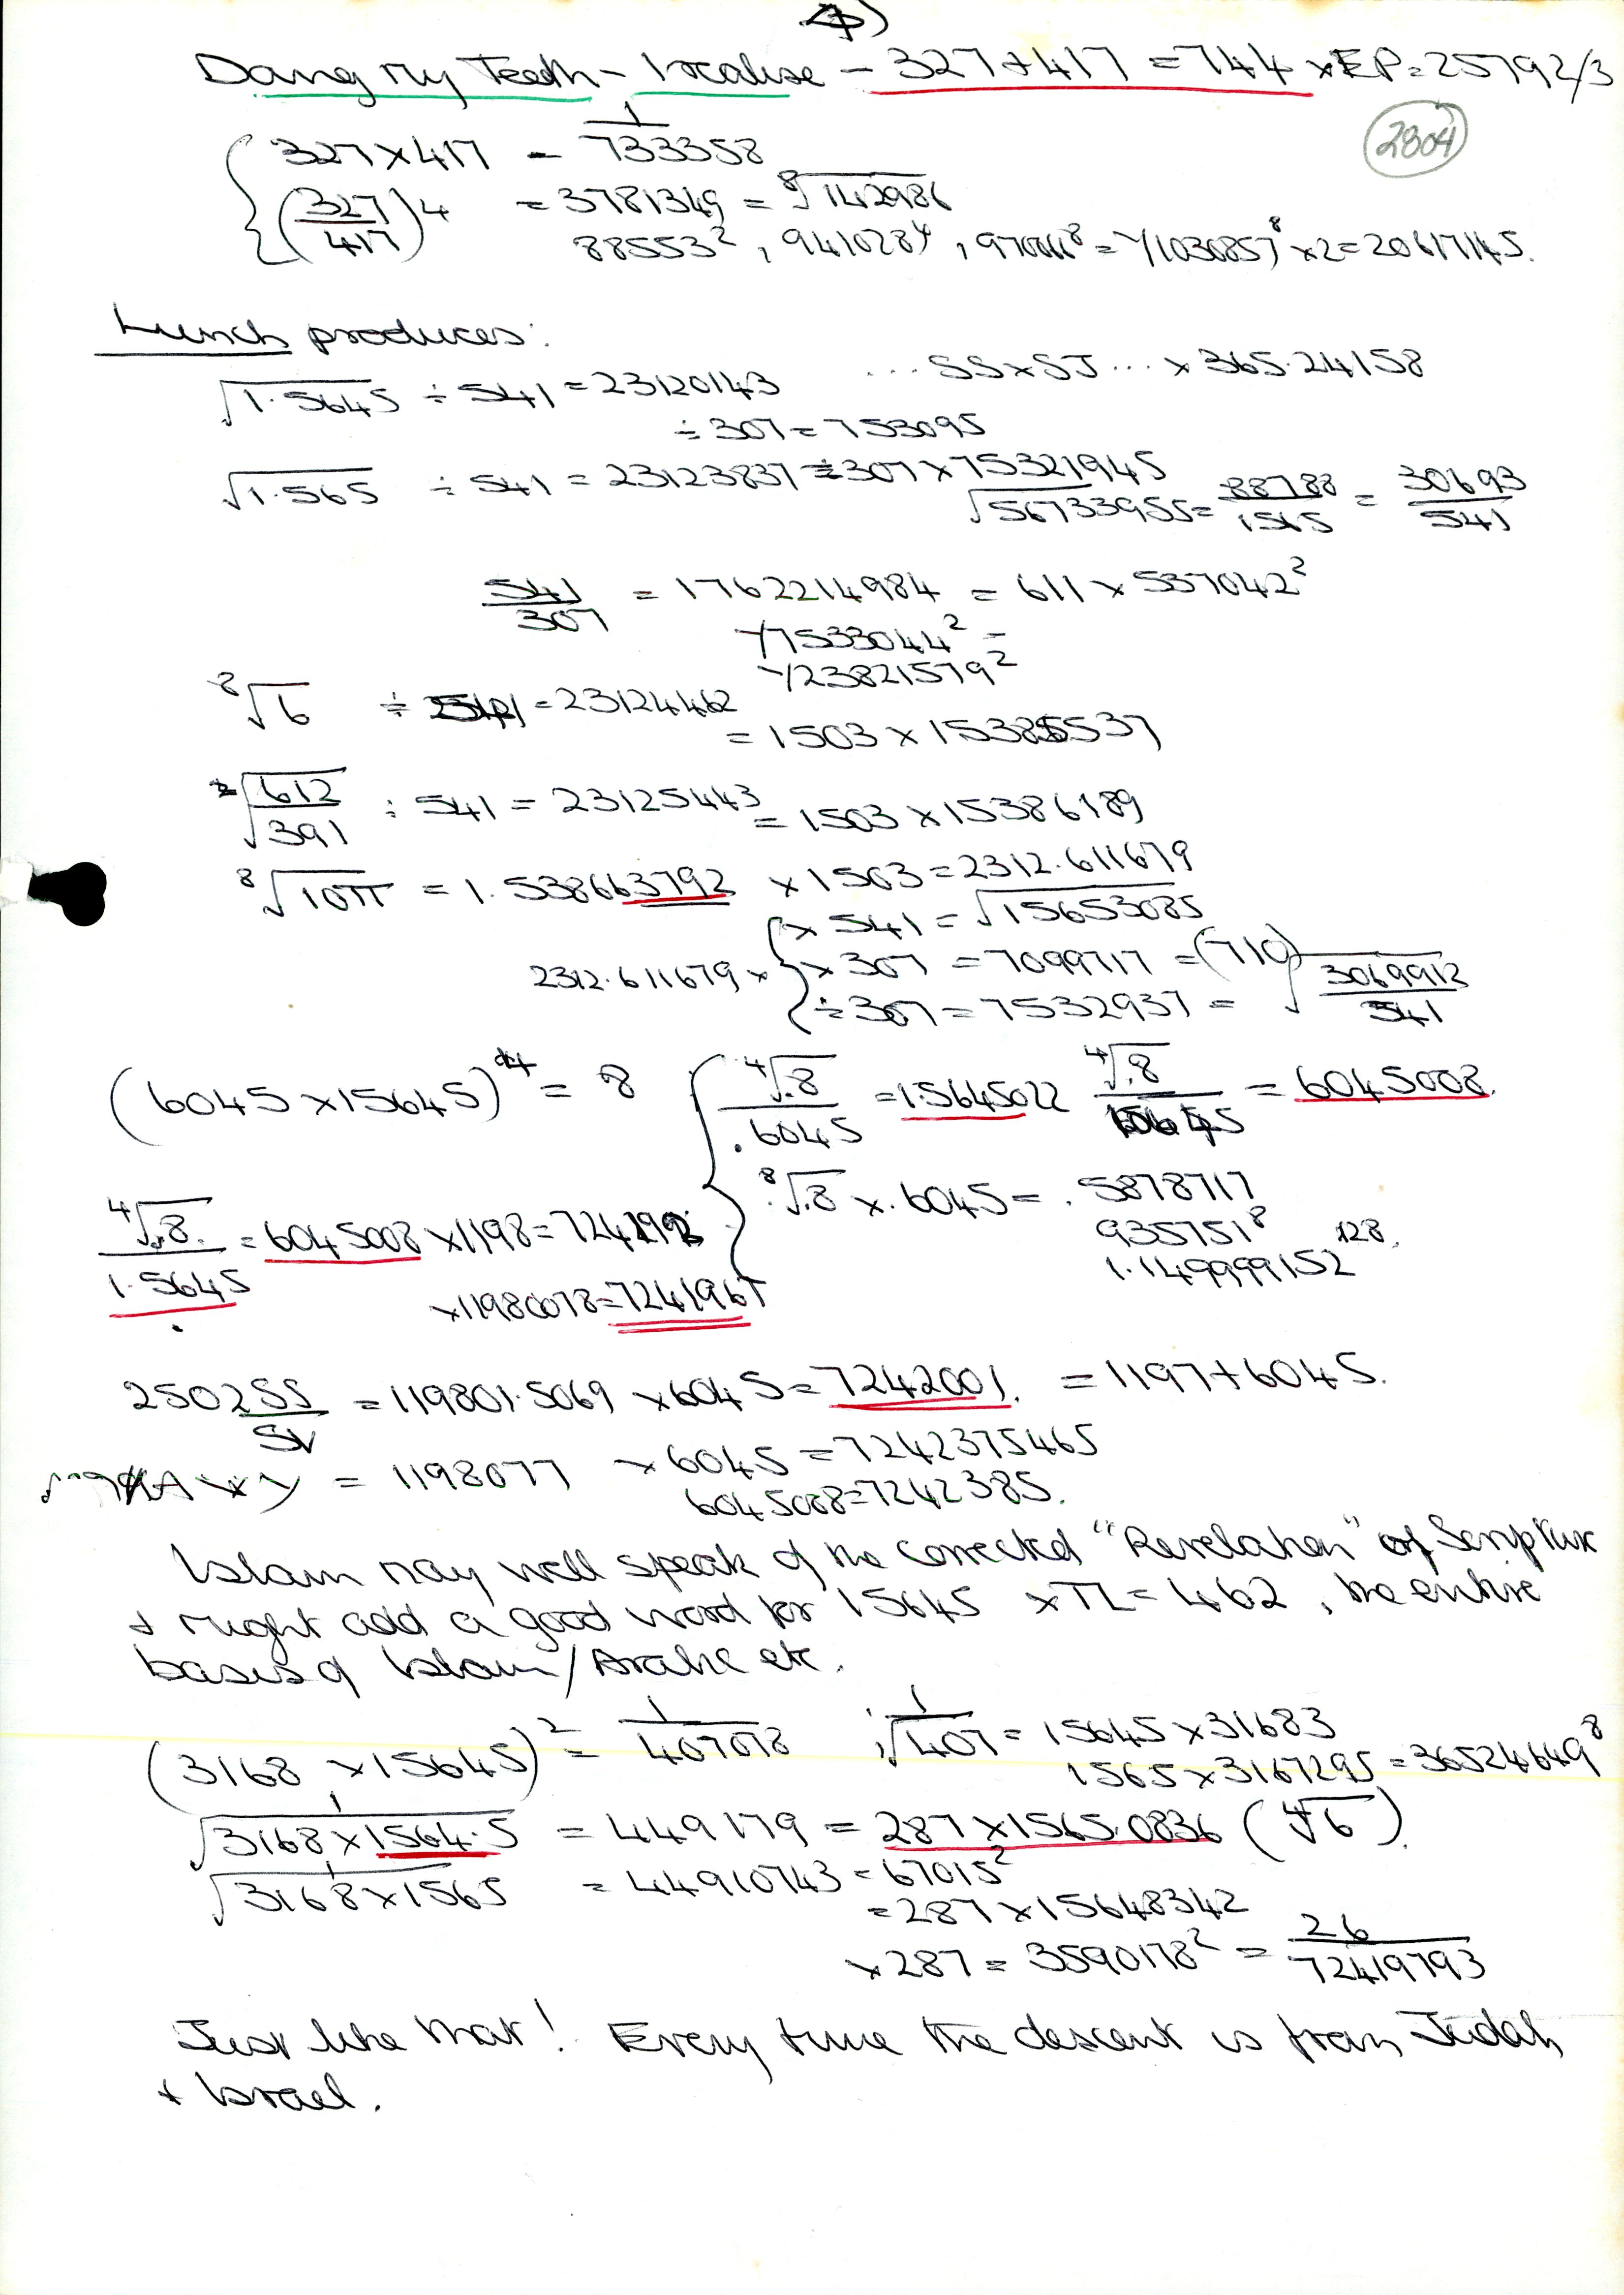 7)
Doing my Teeth - localise - 327+417 = 744 × EP = 25792/3
2804
327×417 = 1/733358
(327/417)4 = 3781349 = 8√142986
88553², 941028⁴, 970066⁸ = √(1030857)⁸ ×2 = 20617145.
Lunch produces:
√1.5645 ÷ 541 = 23120143 ... SS×SJ ... × 365.24158
÷ 307 = 753095
√1.565 ÷ 541 = 23123837 ÷ 307 × 75321945
√56733955 = 88788/1565 = 30693/541
541/307 = 1762214984 = 611 × 537042²
√7533044² =
√23821579²
8√6 ÷ 541 = 23124462
= 1503 × 15385537
√612/391 ÷ 541 = 23125443 = 1503 × 15386189
8√10π = 1.538663792 × 1503 = 2312.611679
× 541 = √15653085
2312.611679 × × 307 = 7099717 = (710)
÷ 307 = 7532937 = √3069912/541
(6045 × 15645)⁴ = 8
4√.8/.6045 = 1.5645022 4√.8/15645 = 6045008.
8√.8 × .6045 = .5878717
935751⁸
1.149999152 128.
4√.8./1.5645 = 6045008 × 1198 = 724192
× 11980078 = 7241967
2502SS/SV = 119801.5069 × 6045 = 7242001. = 1197+6045.
= 1198077 × 6045 = 7242375465
6045008 = 7242385.
Islam may well speak of the corrected "Revelation" of Scripture
+ might add a good word for 15645 × TL = 462, the entire
basis of Islam/Arabic etc.
(3168 × 15645)² = 1/407078 ; 1/√407 = 15645 × 31683
1565 × 3167295 = 36524649⁸
1/√3168×1564.5 = 449179 = 287 × 1565.0836 (4√6).
1/√3168×1565 = 44910743 = 67015²
= 287 × 15648342
× 287 = 3590178² = 26/72419793
Just like that! Every time the descent is from Judah
+ Israel.